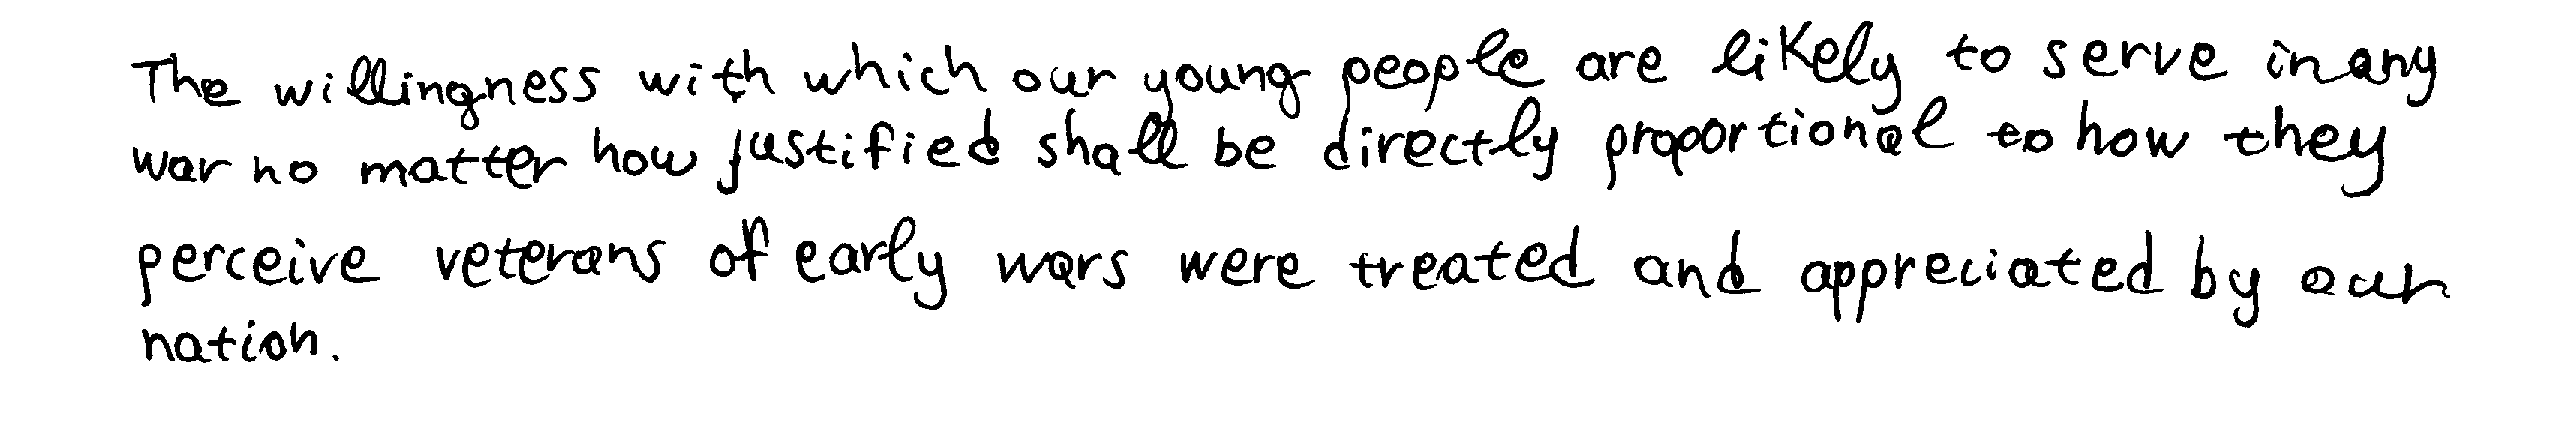 The willingness with which our young people are likely to serve in any
war no matter how justified shall be directly proportional to how they
perceive veterans of early wars were treated and appreciated by our
nation.